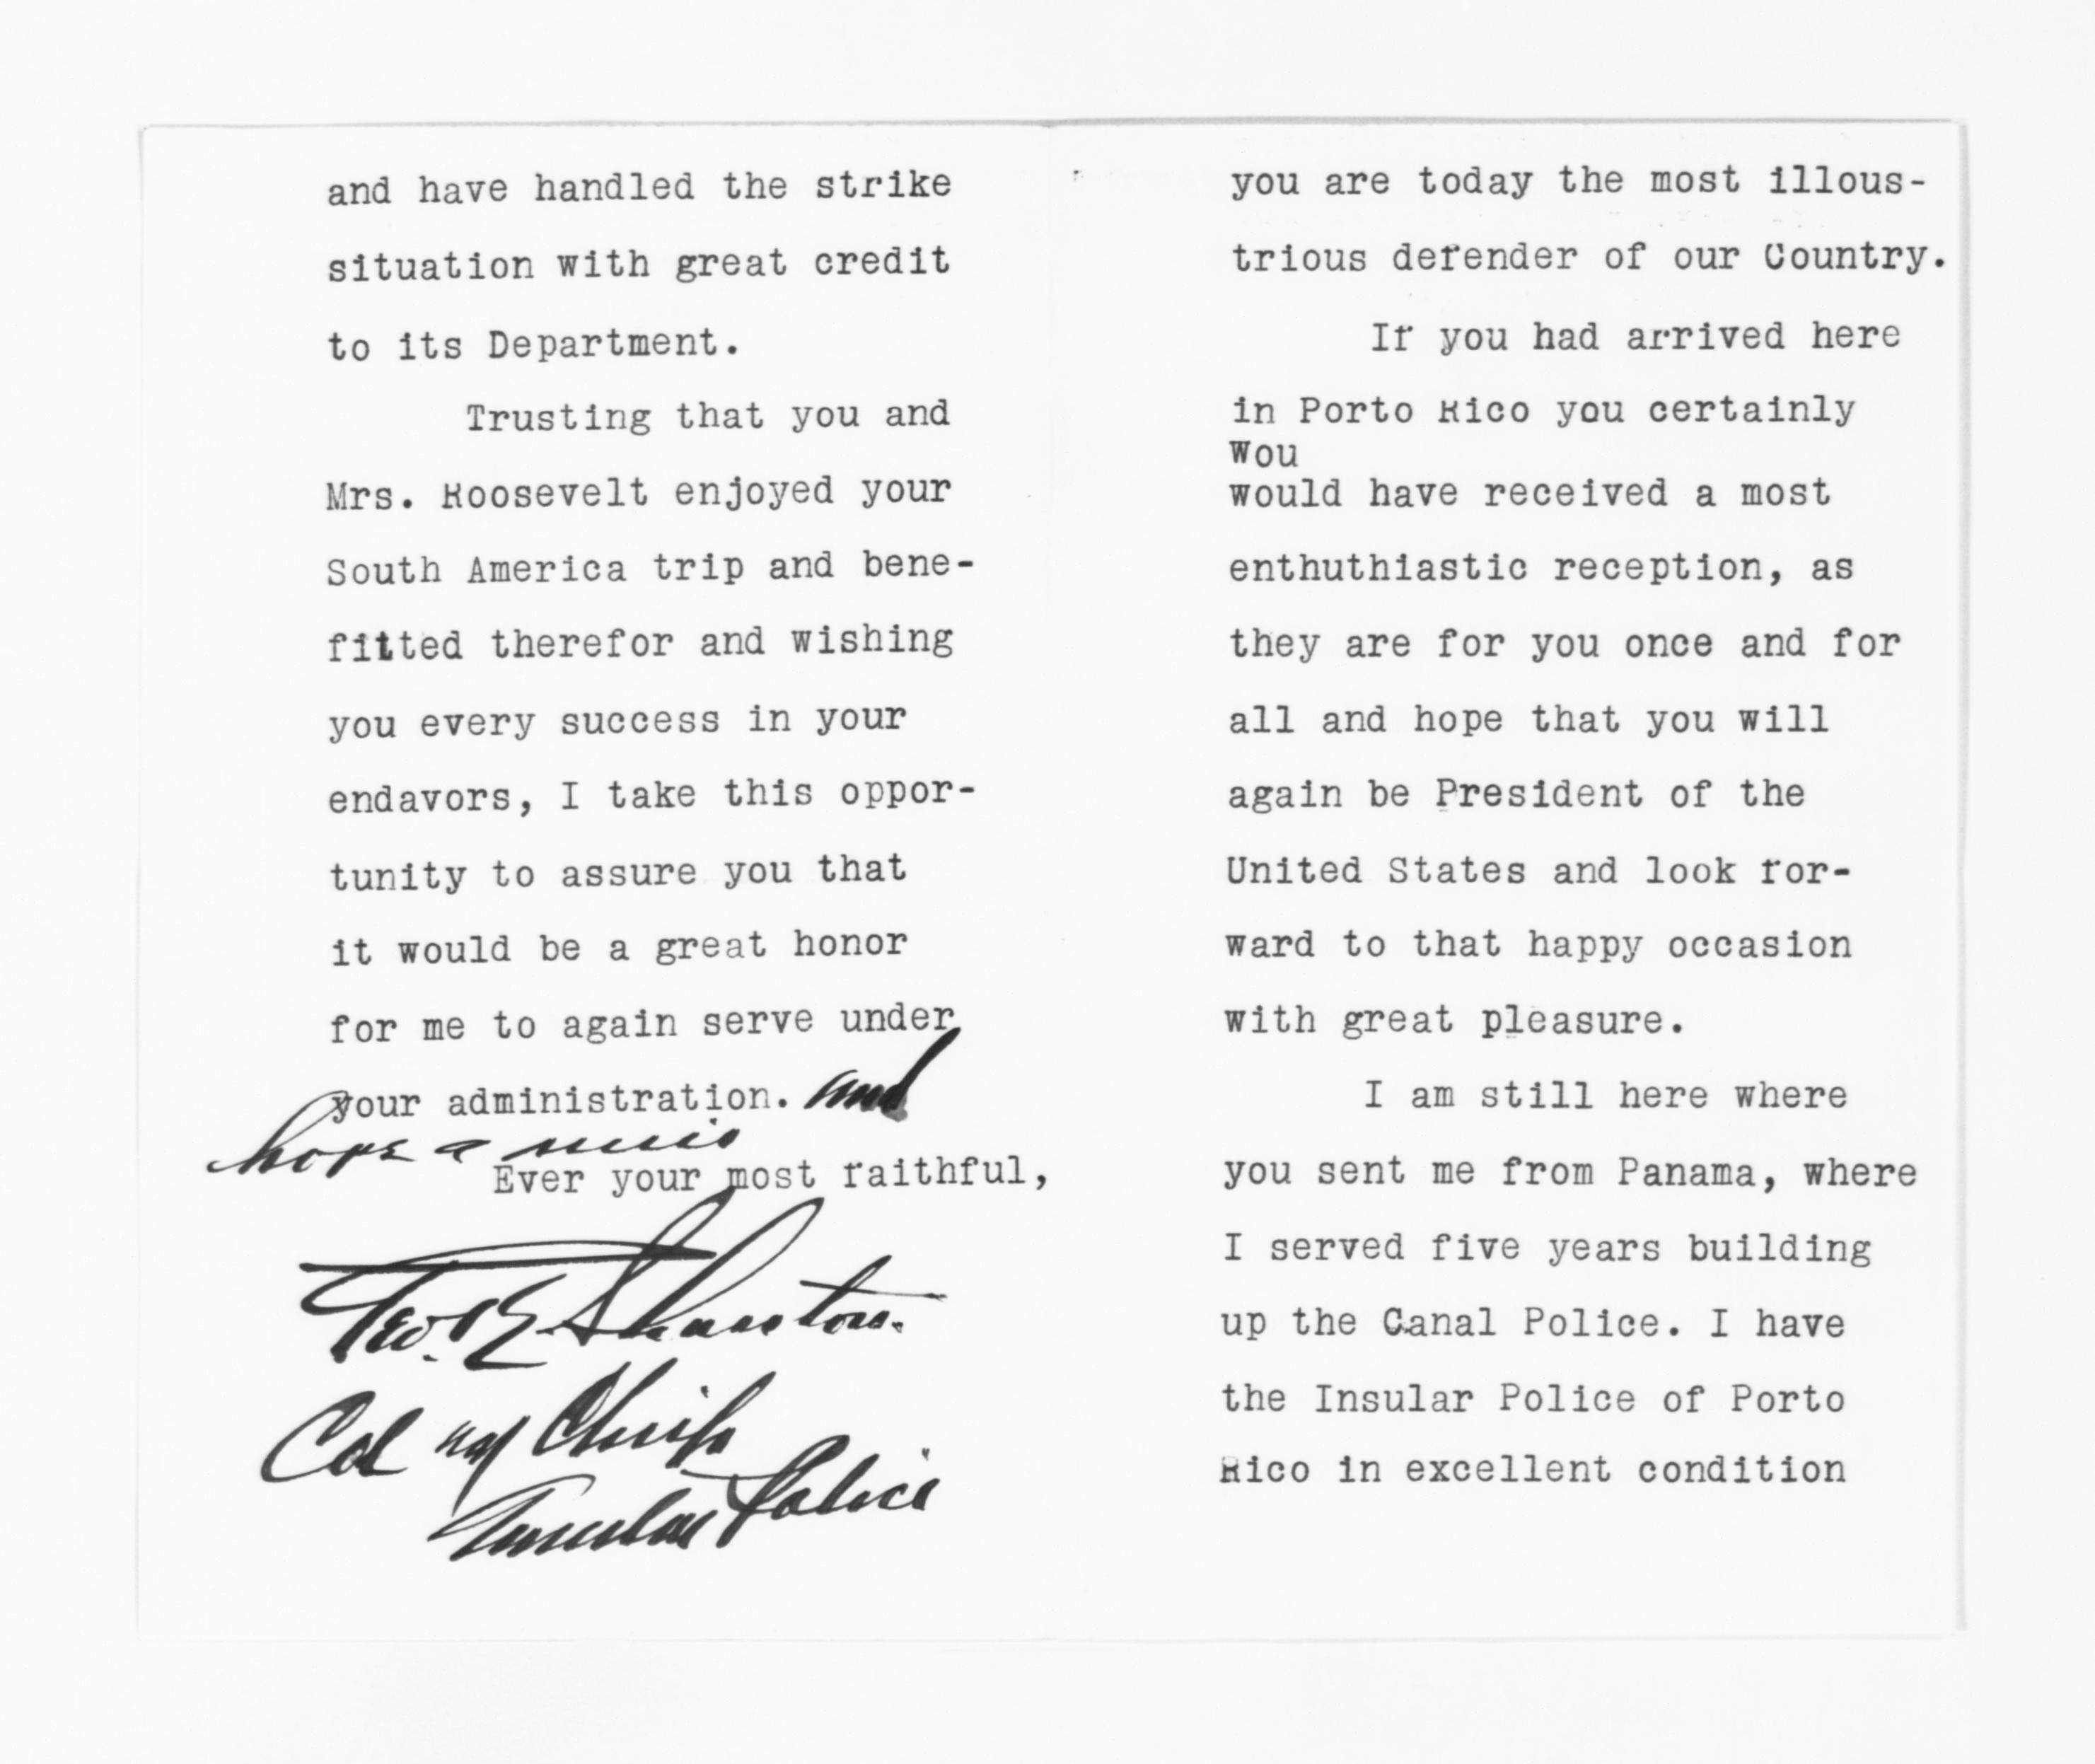 and have handled the strike
situation with great credit
to its Department.
Trusting that you and
Mrs. Roosevelt enjoyed your
South America trip and bene-
fitted therefor and wishing
you every success in your
endavors, I take this oppor-
tunity to assure you that
it would be a great honor
for me to again serve under
your administration. and
hope
Ever your most faithful,
Geo. R Shanton.
Col and Chief
Insular Police
you are today the most illous-
trious defender of our Country.
If you had arrived here
in Porto Rico you certainly
Wou
would have received a most
enthuthiastic reception, as
they are for you once and for
all and hope that you will
again be President of the
United States and look for-
ward to that happy occasion
with great pleasure.
I am still here where
you sent me from Panama, where
I served five years building
up the Canal Police. I have
the Insular Police of Porto
Rico in excellent condition